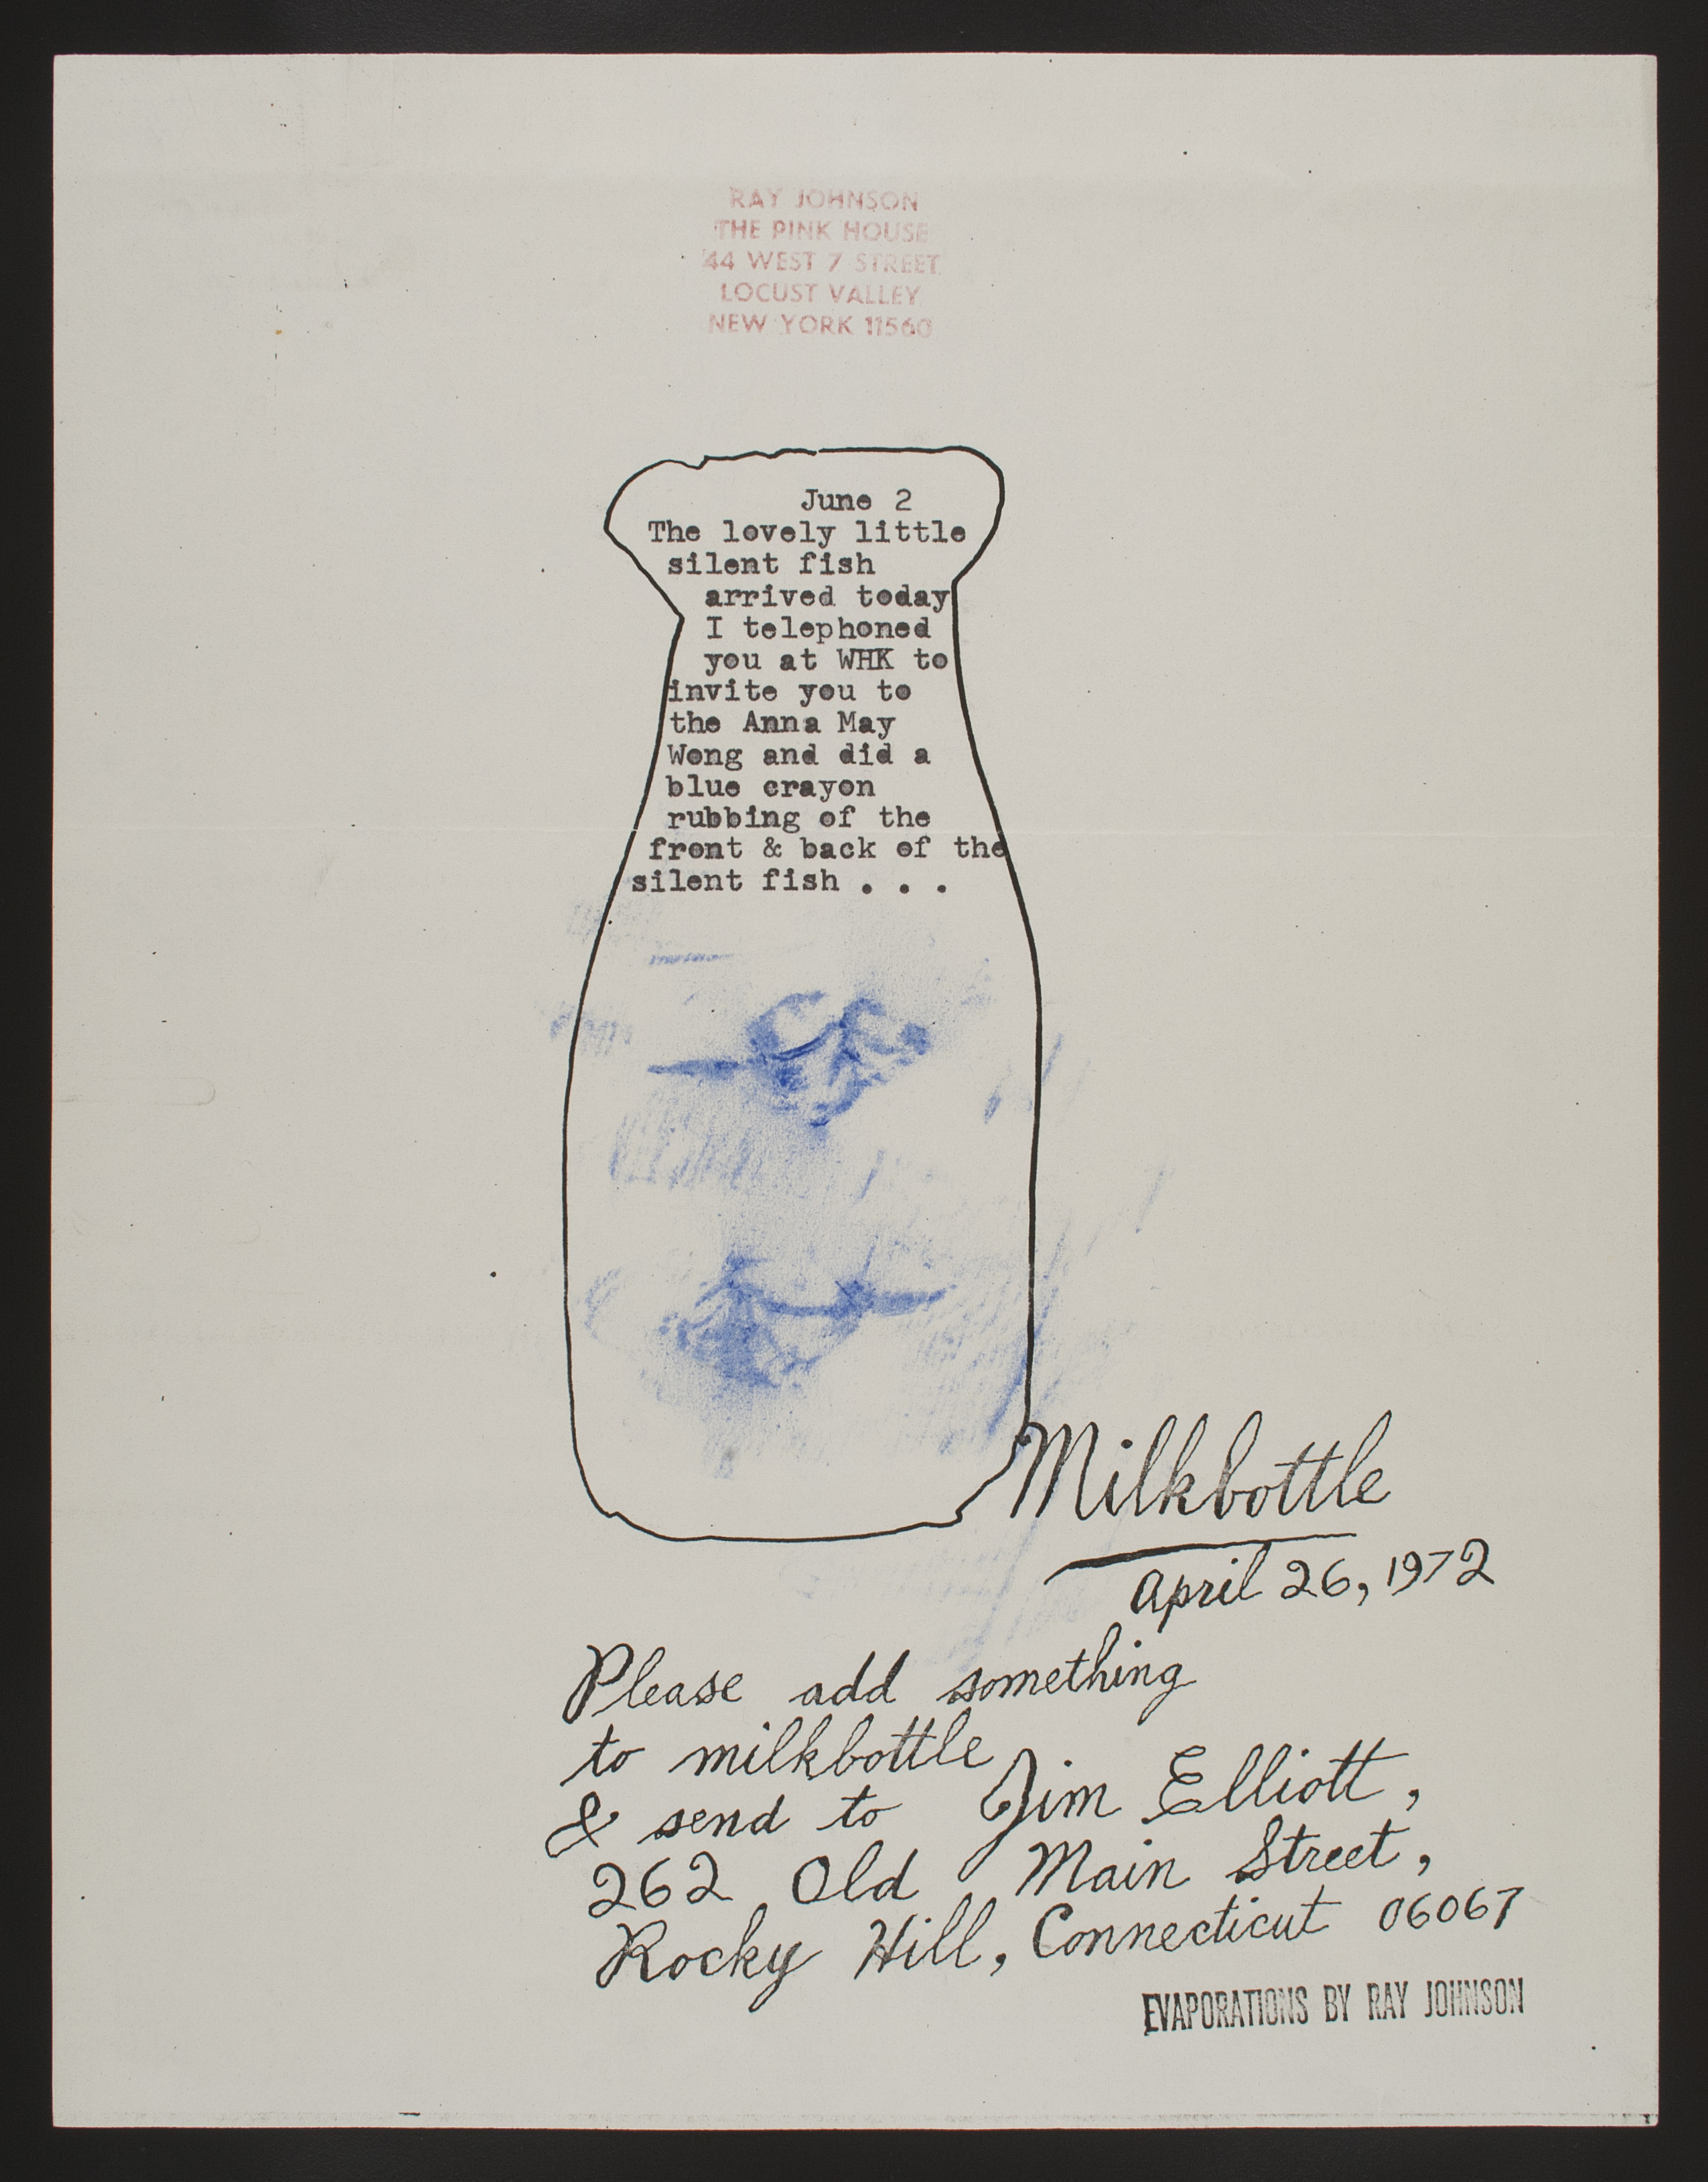 RAY JOHNSON
THE PINK HOUSE
44 WEST 7 STREET
LOCUST VALLEY
NEW YORK 11560
June 2
The lovely little
silent fish
arrived today
I telephoned
you at WHK to
invite you to
the Anna May
Wong and did a
blue crayon
rubbing of the
front & back of the
silent fish . . .
Milkbottle
April 26, 1972
Please add something
to milkbottle
& send to Jim Elliott,
262 Old Main Street,
Rocky Hill, Connecticut 06067
EVAPORATIONS BY RAY JOHNSON